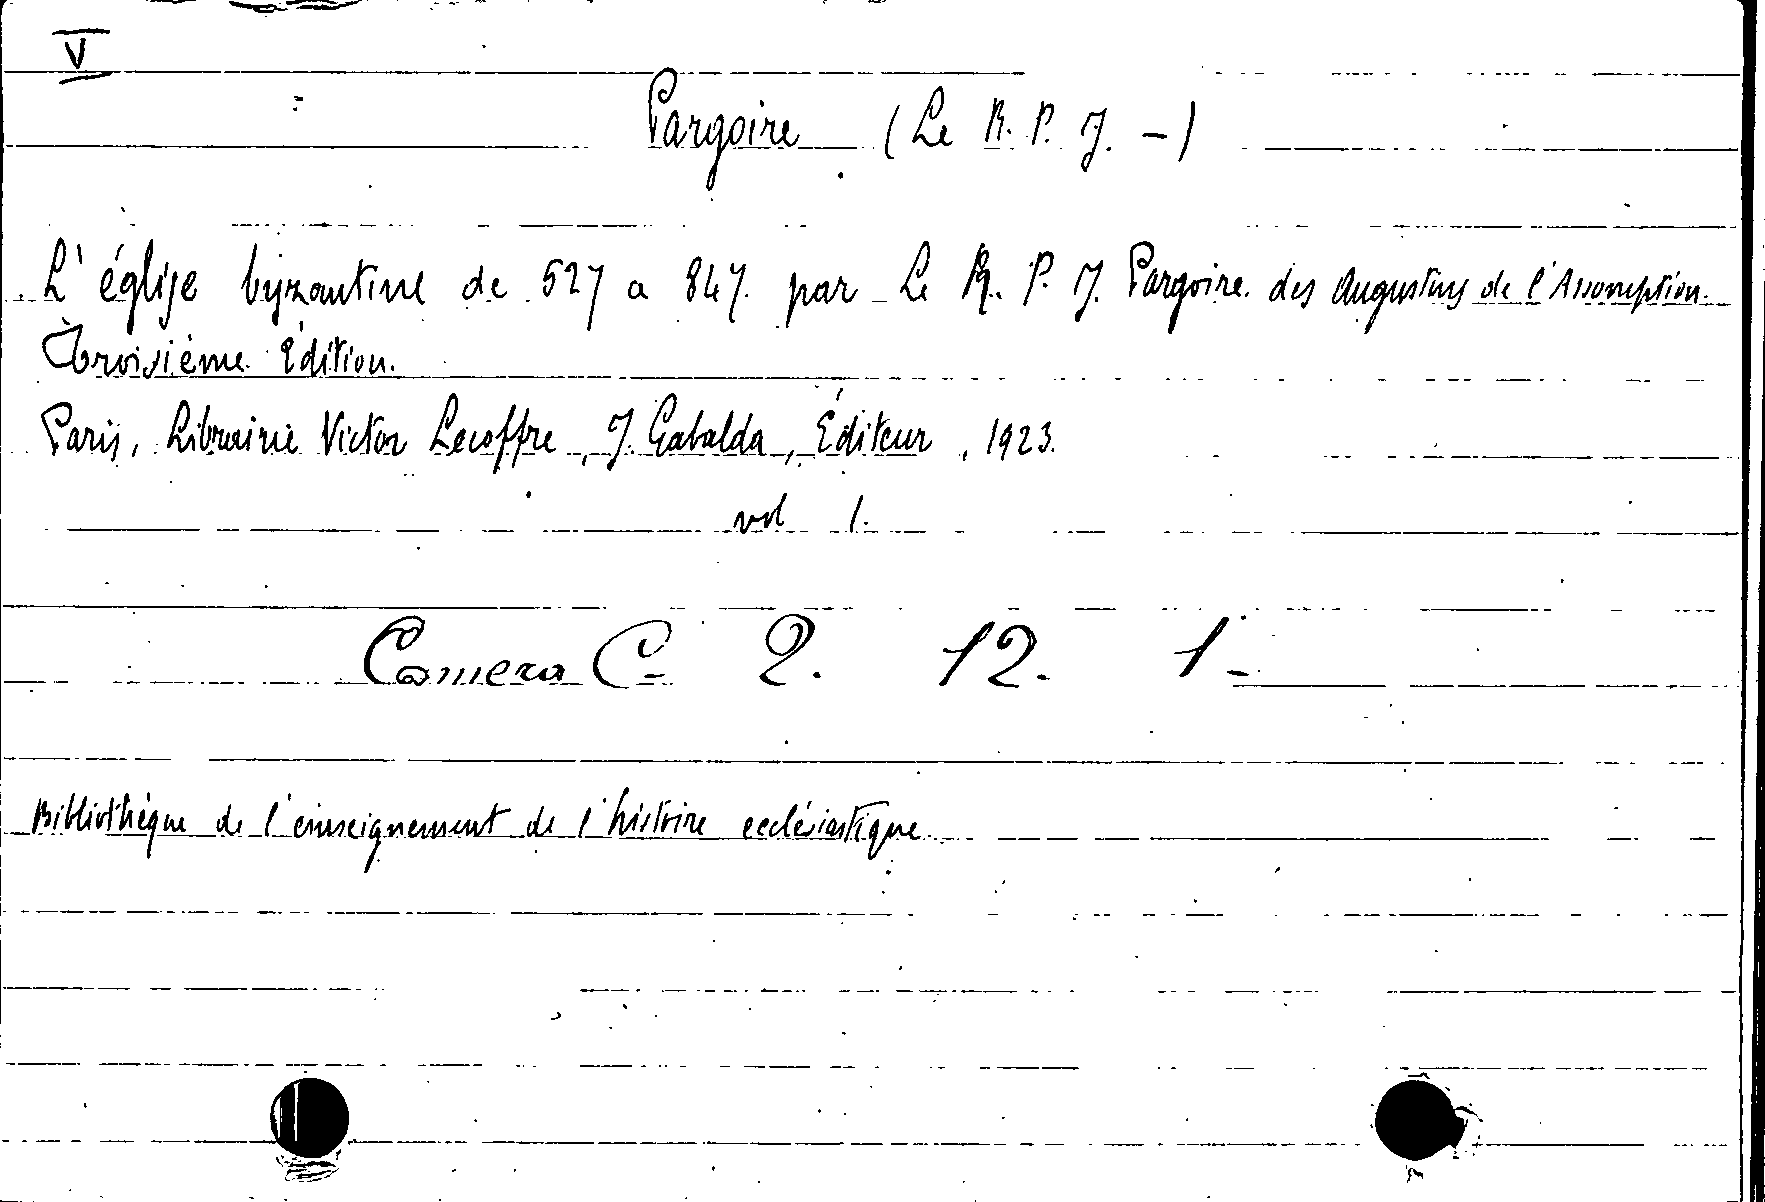 V
Pargoire (Le R. P. J. -)
L'église byzantine de 527 a 847. par Le R. P. J. Pargoire. des Augustins de l'Assomption.
Troisième Édition.
Paris, Librairie Victor Lecoffre, J. Gabalda, Éditeur, 1923.
vol 1.
Camera C- 2. 12. 1-
Bibliothèque de l'enseignement de l'histoire ecclésiastique.